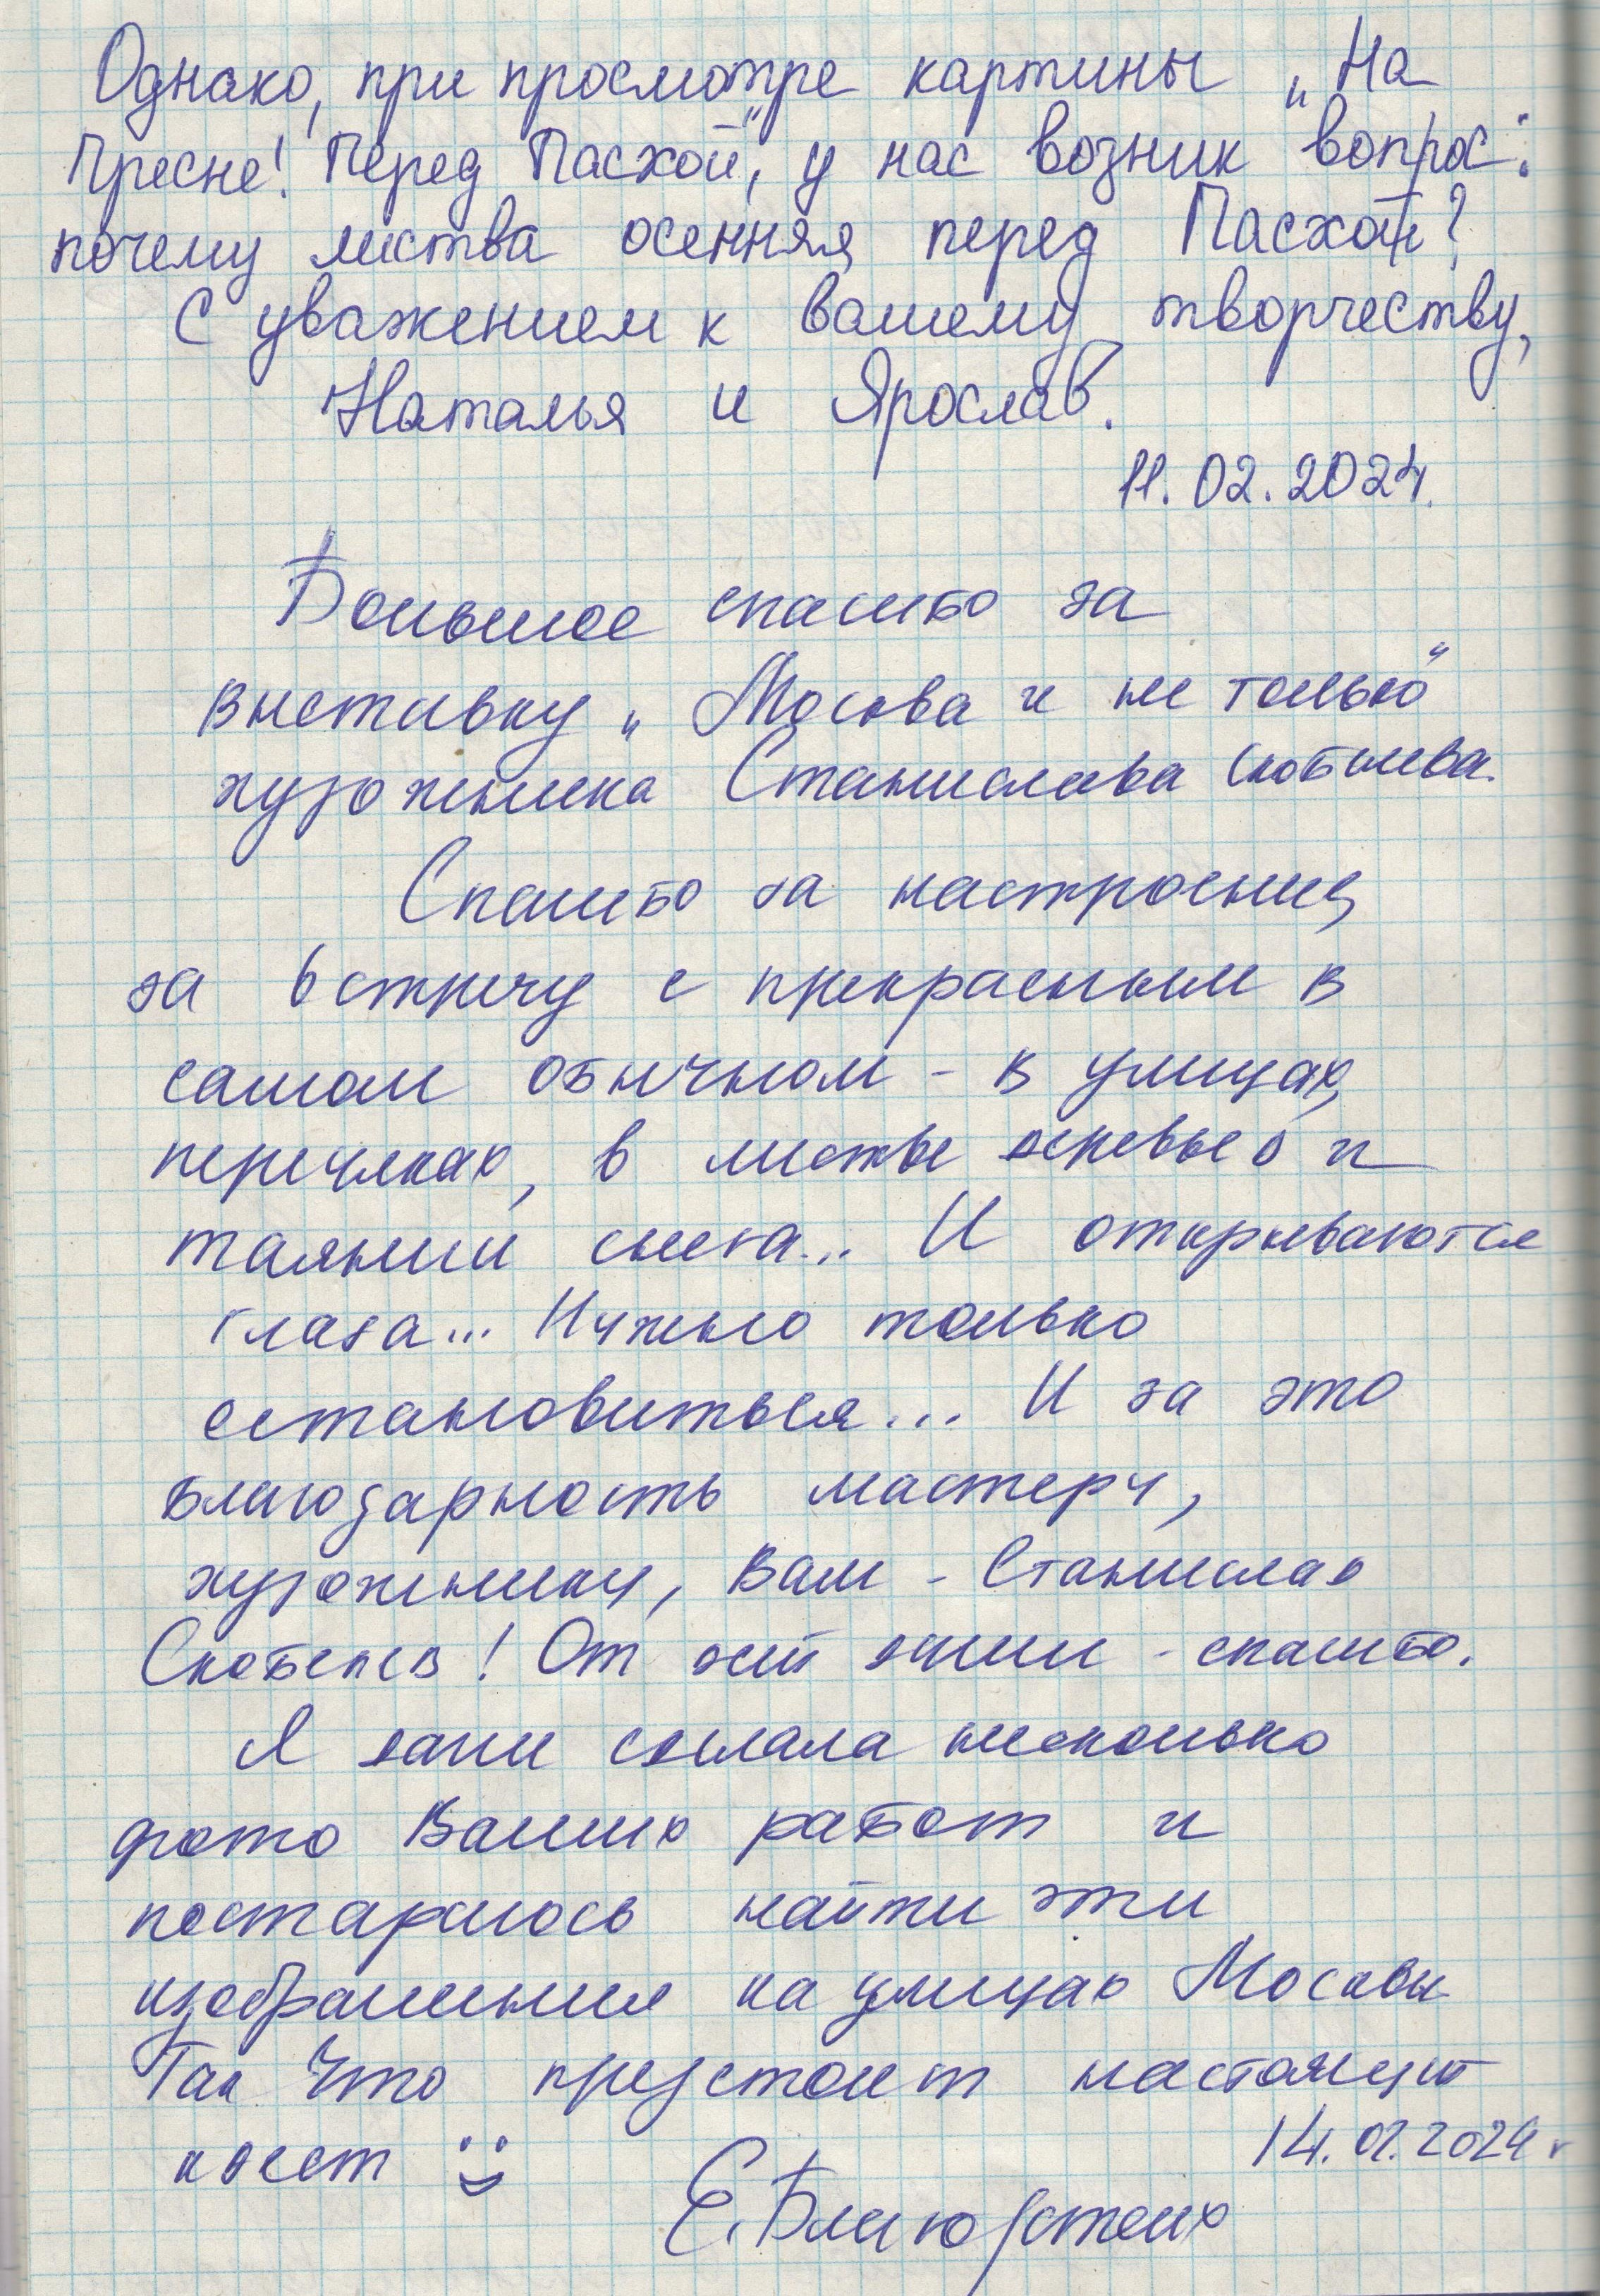 Однако, при просмотре картины „На
Пресне! Перед Пасхой", у нас возник вопрос:
почему листва осенняя перед Пасхой?
С уважением к вашему творчеству,
Наталья и Ярослав.
11.02.2024.
Большое спасибо за
выставку „Москва и не только"
художника Станислава Скобелева.
Спасибо за настроение,
за встречу с прекрасным в
самом обычном - в улицах,
переулках, в листве деревьев и
таянии снега... И открываются
глаза... Нужно только
остановиться... И за это
благодарность мастеру,
художнику, Вам - Станислав
Скобелев! От всей души - спасибо.
Я даже сделала несколько
фото Ваших работ и
постараюсь найти эти
изображения на улицах Москвы
Так что предстоит настоящий
квест
14.02.2024 г
Е.